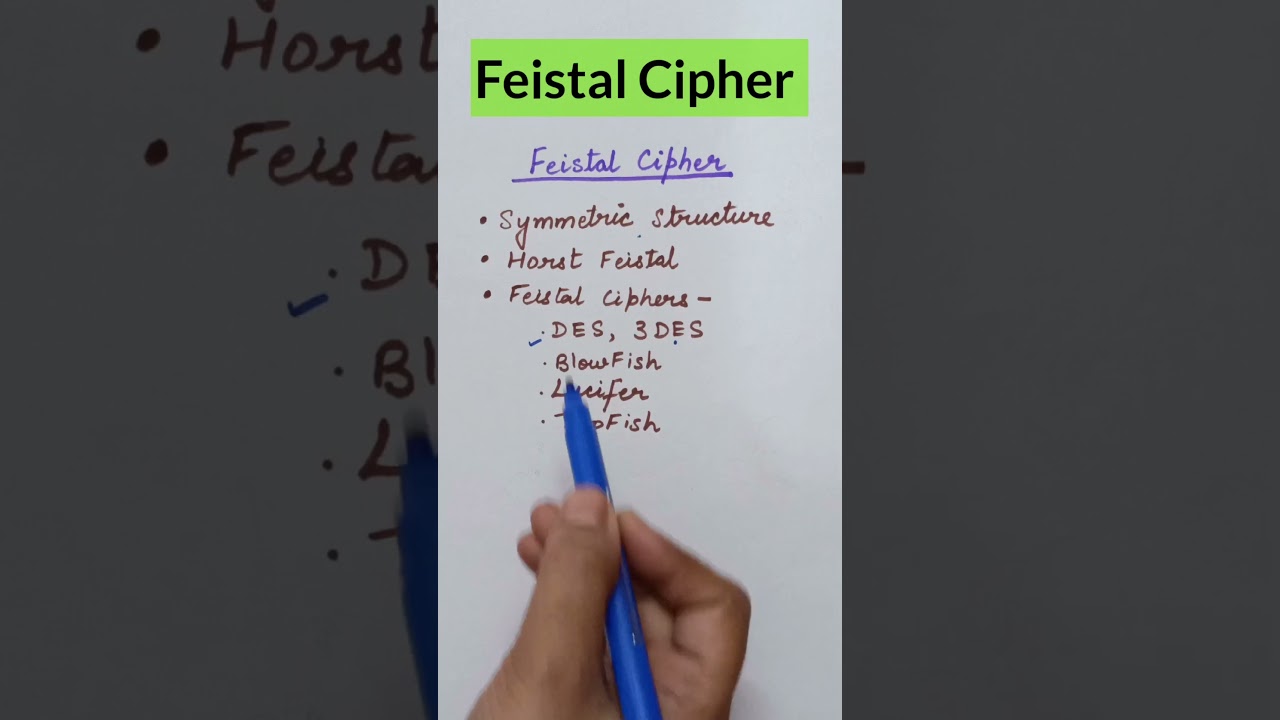 Feistal Cipher
Feistal Cipher
• Symmetric Structure
• Horst Feistal
• Feistal Ciphers -
· DES, 3DES
· BlowFish
· Lucifer
· Fish